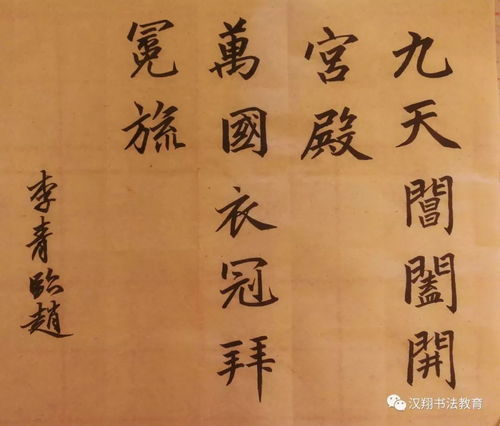 九天閶闔開
宮殿
萬國衣冠拜
冕旒
李青臨趙
汉翔书法教育